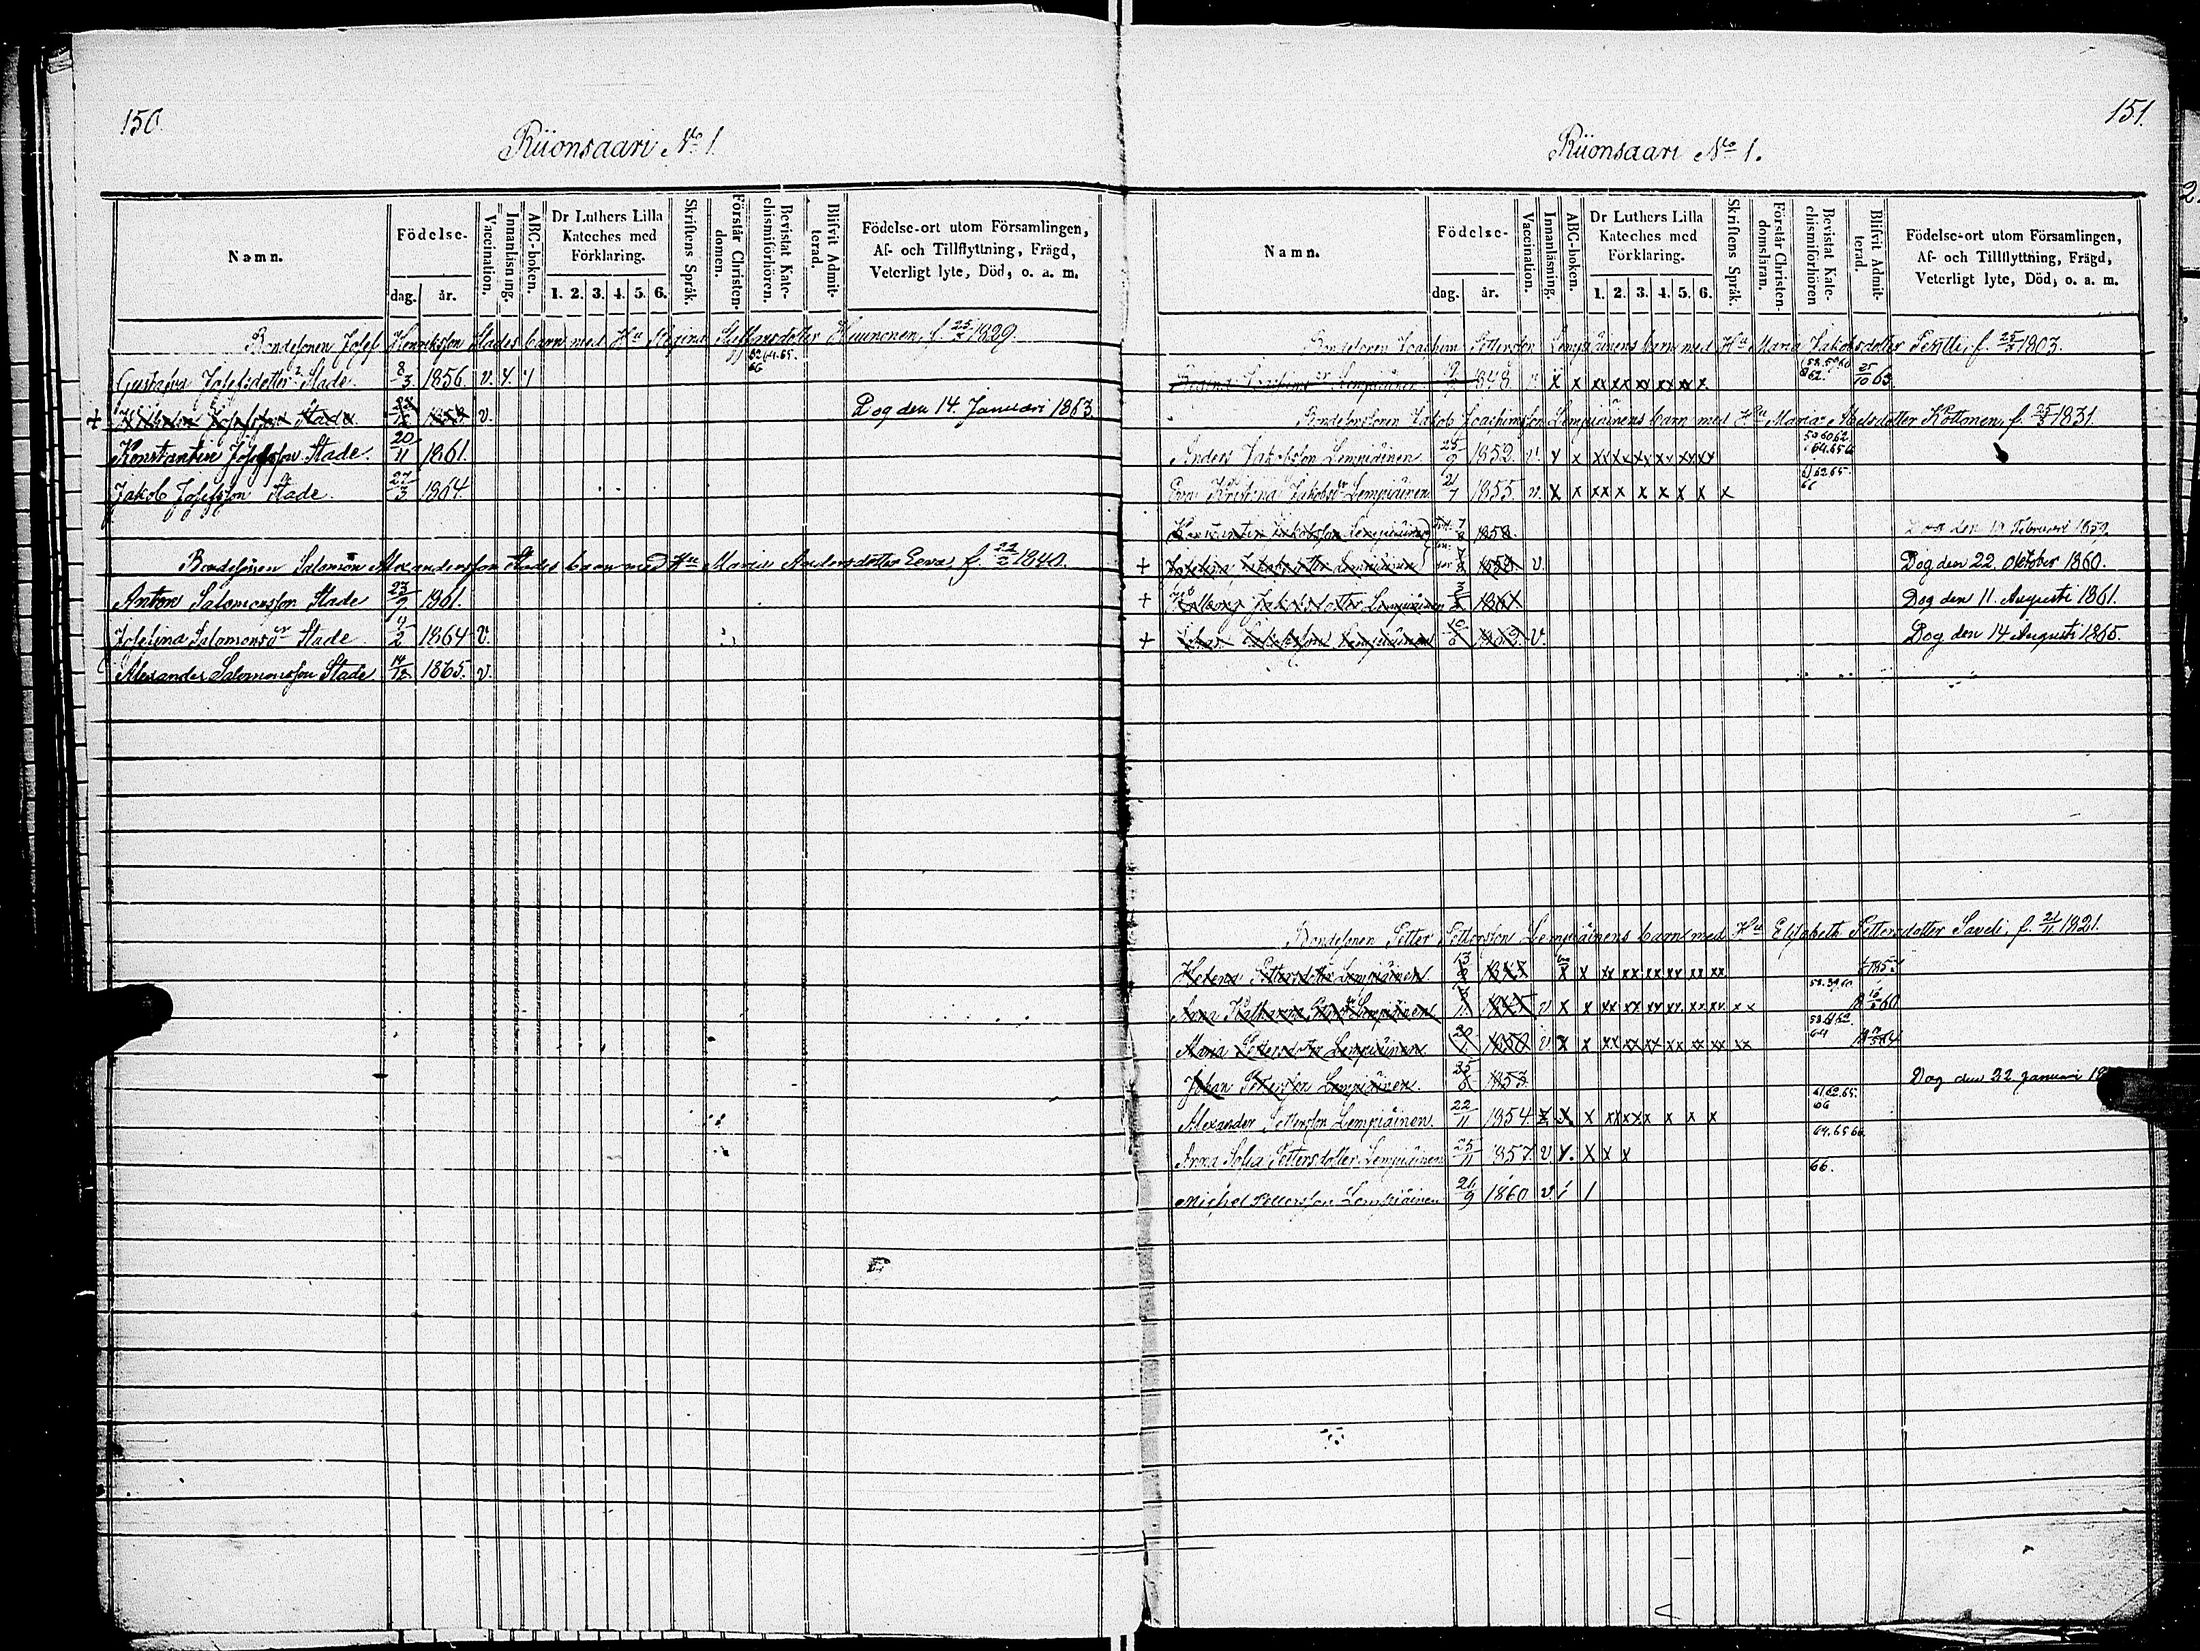 150.
Riionsaari No 1.
Namn.
Födelse-
dag.
år.
Vaccination.
Innanläsning.
ABC-boken.
Dr Luthers Lilla
Kateches med
Förklaring.
1. 2. 3. 4. 5. 6.
Skriftens Språk.
Förstår Christen-
domen.
Bevistat Kate-
chismiförhören.
Blifvit Admit-
terad.
Födelse-ort utom Församlingen,
Af- och Tillflyttning, Frägd,
Veterligt lyte, Död, o. a. m.
Bondesonen Josef Henriksson Stades barn med Hu Regina Staffansdotter f. 25 1829.
Gustafva Josefsdotter Stade 8/3 1856. v.
+ Wilhelm Josefsson Stade 1858 v. Dog den 14. Januari 1863
Konstantin Josefsson Stade. 20/11 1861.
Jakob Josefsson Stade. 27/3 1864.
Bondesonen Salomon Alexandersson Stades barn med Hu Maria Andersdotter Eeva, f. 22/2 1840.
Anton Salomonsson Stade 23/9 1861.
Josefina Salomonsdr Stade 4/2 1864 v.
Alexander Salomonsson Stade 14/12 1865. v.
151.
Riionsaari No 1.
Namn.
Födelse-
dag.
år.
Vaccination.
Innanläsning.
ABC-boken.
Dr Luthers Lilla
Kateches med
Förklaring.
1. 2. 3. 4. 5. 6.
Skriftens Språk.
Förstår Christen-
domsläran.
Bevistat Kate-
chismiförhören
Blifvit Admit-
terad.
Födelse-ort utom Församlingen,
Af- och Tillflyttning, Frägd,
Veterligt lyte, Död, o. a. m.
Bondesonen Joachim Pettersson Lempiäinens barn med Hu Maria Jakobsdotter Penttie, f. 1803.
Lempiäinen 1848 x x xx xx xx xx xx x 25/10 63.
Bondesonsonen Jakob Joachimsson Lempiäinens barn med Hu Maria Abelsdotter Kottonen f. 25 1831.
Anders Jakobsson Lempiäinen 25/9 1852. v. x x xx xx xx xx xx xx 59 60 62 64 65 66
Eva Kristina Jakobsdr Lempiäinen 21/7 1855. v. x x xx x x x x x x 61 62 65. 66
Konstantin Jakobsson Lempiäinen 7/8 1858. Dog den Februari 1859.
+ Josefina Jakobsdotter Lempiäinen 7/8 1858 v. Dog den 22. Oktober 1860.
+ Walborg Jakobsdotter Lempiäinen 1861 Dog den 11. Augusti 1861.
+ Johan Jakobsson Lempiäinen 10/6 1862. v. Dog den 14 Augusti 1865.
Bondesonen Petter Pettersson Lempiäinens barn med Hu Elisabeth Pettersdotter Saveli, f. 21/11 1821.
Helena Pettersdotter Lempiäinen 13 x x xx xx xx xx xx xx 1857
Anna Katharina Lempiäinen 1845 v x x xx xx xx xx xx xx x x 58. 59 60 60
Maria Pettersdotter Lempiäinen 1850 v x x xx xx xx xx xx xx xx 58 61 62 64 64
Johan Pettersson Lempiäinen. 25/6 1853 Dog den 22 Januari
Alexander Pettersson Lempiäinen. 22/11 1854. x x xx xx x x x x 61 62 65. 66
Anna Sofia Pettersdotter Lempiäinen 25/11 1857 v x. x x x 64. 65 66
Michel Pettersson Lempiäinen 21/9 1860 v 66.